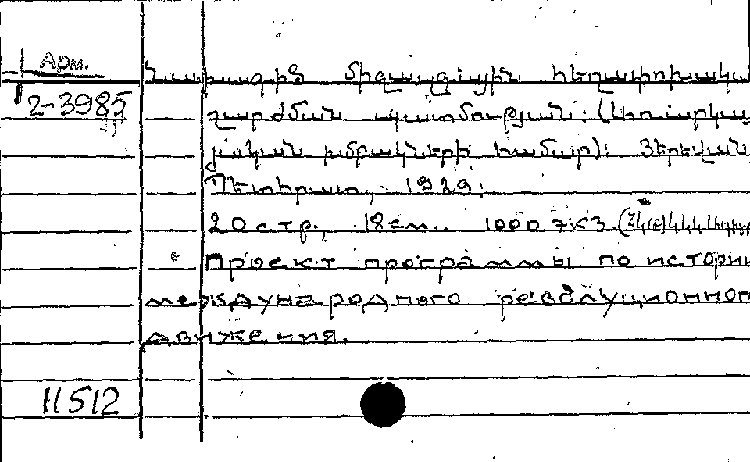 Арм.
2-3985
Նախագիծ միջազգային հեղափոխակա
շարժման պատմության: (Առաջրկա
յական խմբակների համար): Յերեվան,
Պետհրատ, 1929:
20 стр., 18 см.. 1000 экз.
Проект программы по истори
международного революционног
движения.
11512